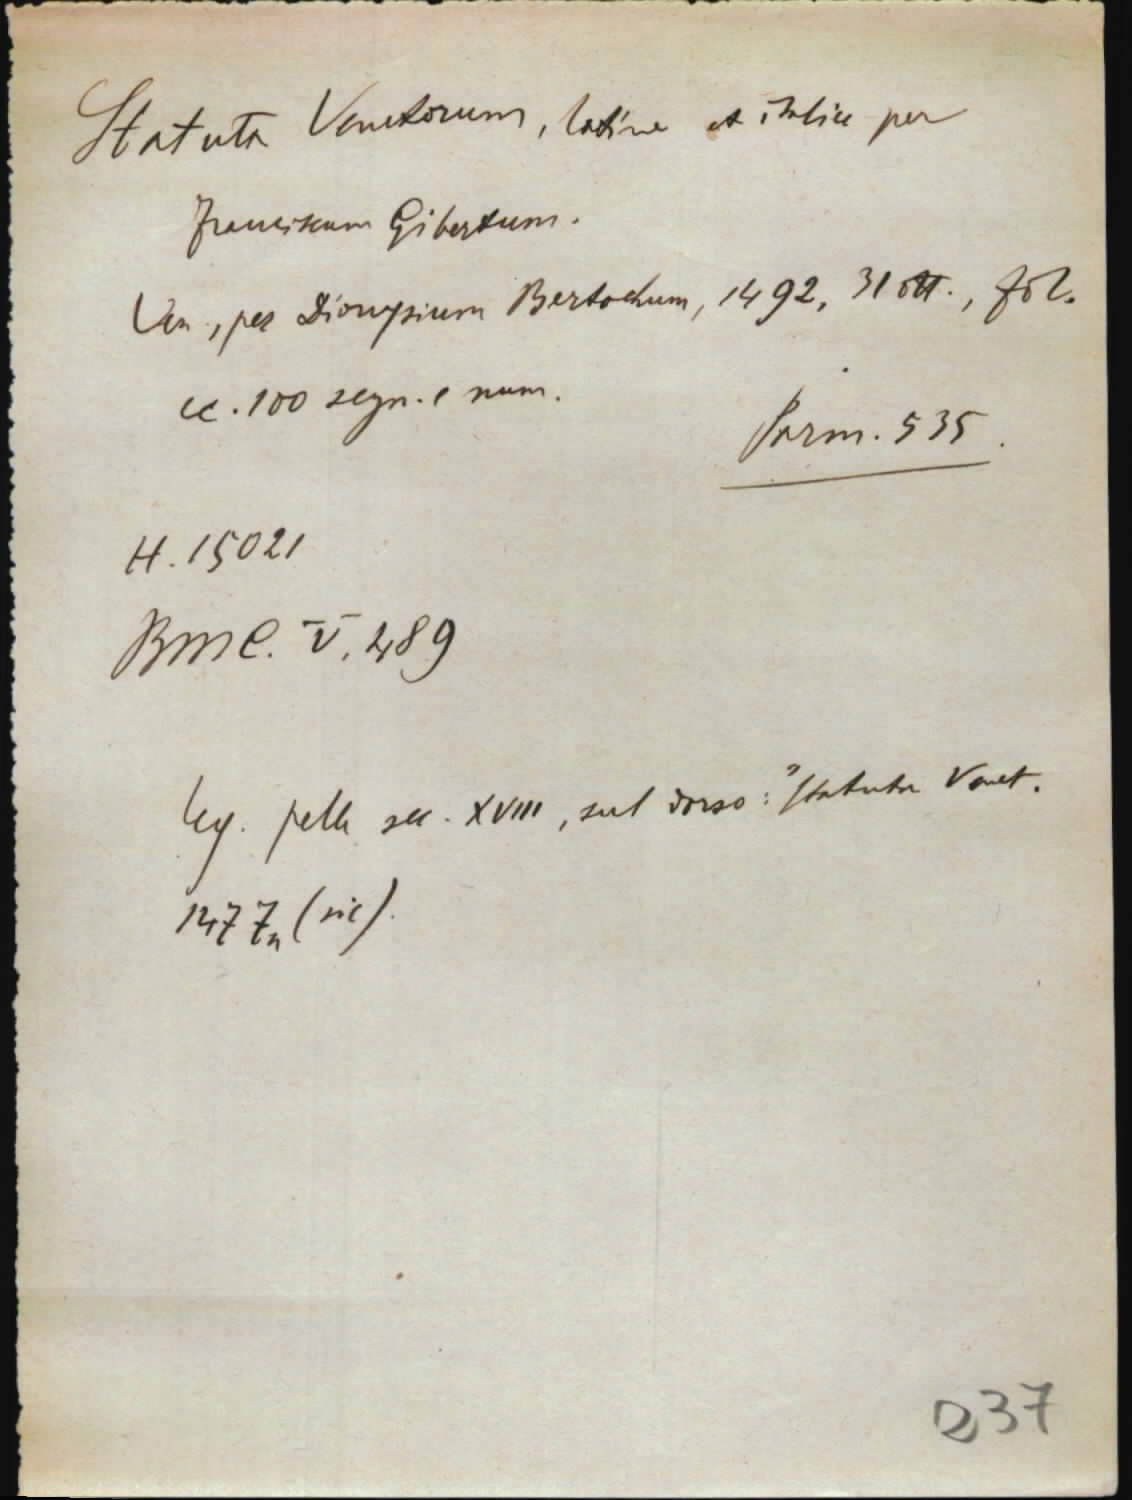 Statuta Venetorum, latine et italice per
Franciscum Gibertum.
Ven., per Dionysium Bertochum, 1492, 31 ott., fol.
cc. 100 segn. e num.
Parm. 535.
H. 15021
BMC. V. 489
leg. pelle sec. XVIII, sul dorso: "Statuta Venet.
1477" (sic).
237